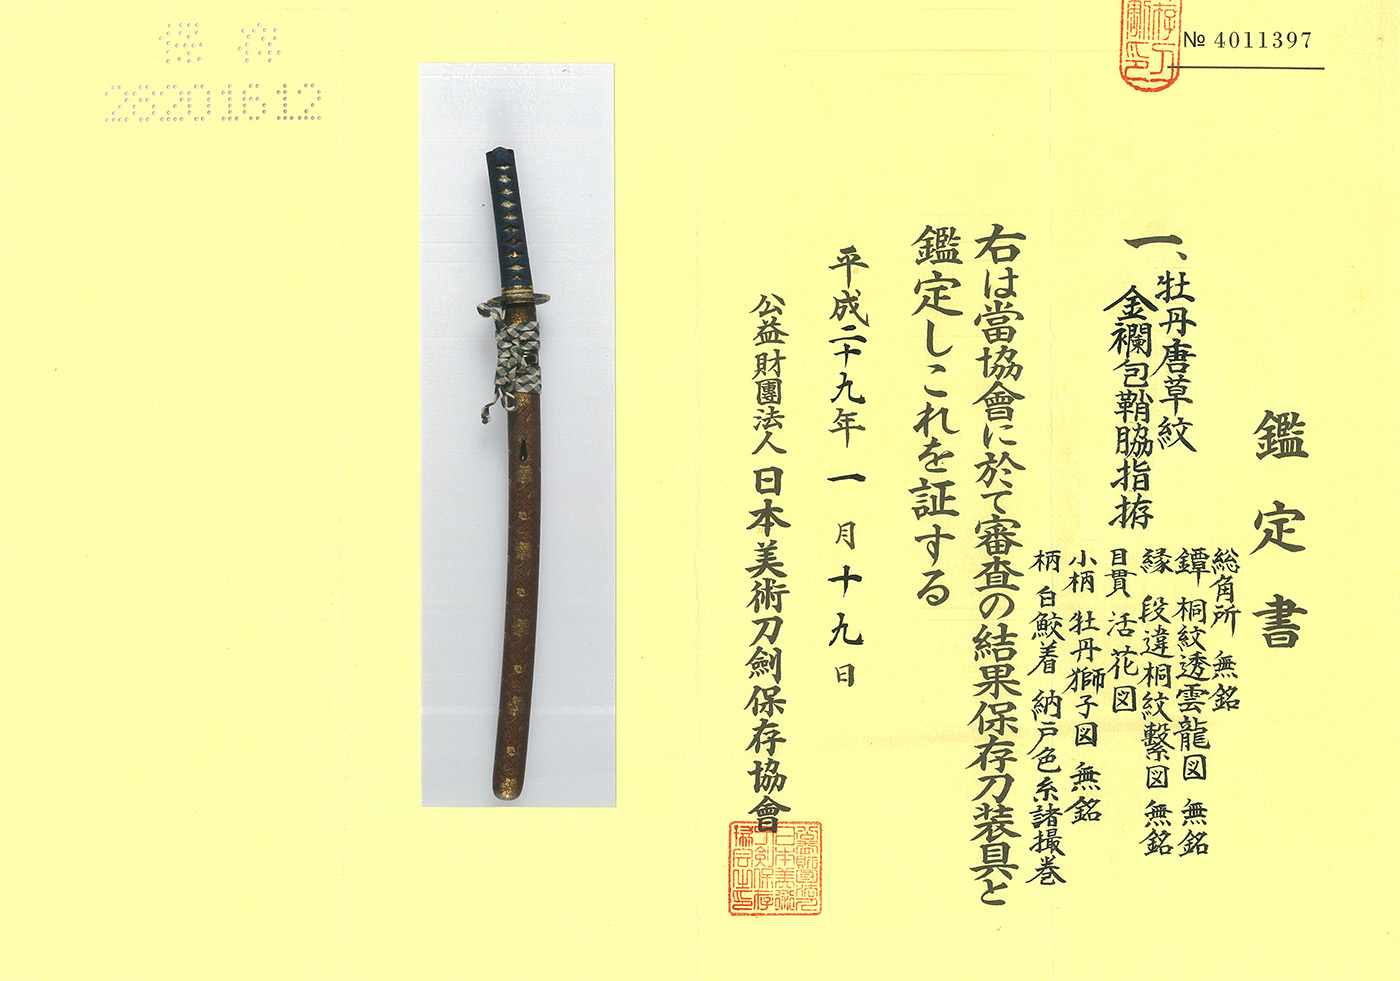 № 4011397
鑑定書
一、牡丹唐草紋
金襴包鞘脇指拵
総角所 無銘
鐔 桐紋透雲龍図 無銘
縁 段違桐紋繋図 無銘
目貫 活花図
小柄 牡丹獅子図 無銘
柄 白鮫着 納戸色糸諸撮巻
右は當協會に於て審査の結果保存刀装具と
鑑定しこれを証する
平成二十九年一月十九日
公益財團法人 日本美術刀劍保存協會
保存
28201612